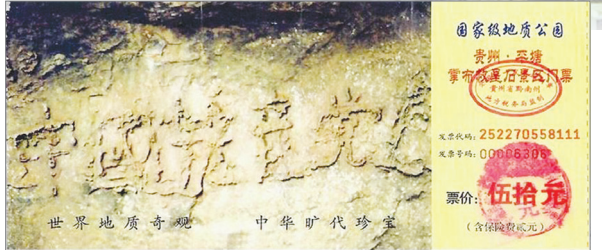 世界地质奇观 中华旷代珍宝
国家级地质公园
贵州·平塘
掌布救星石景区门票
贵州省黔南州
发票代码: 252270558111
发票号码: 00006306
票价: 伍拾元
(含保险费贰元)